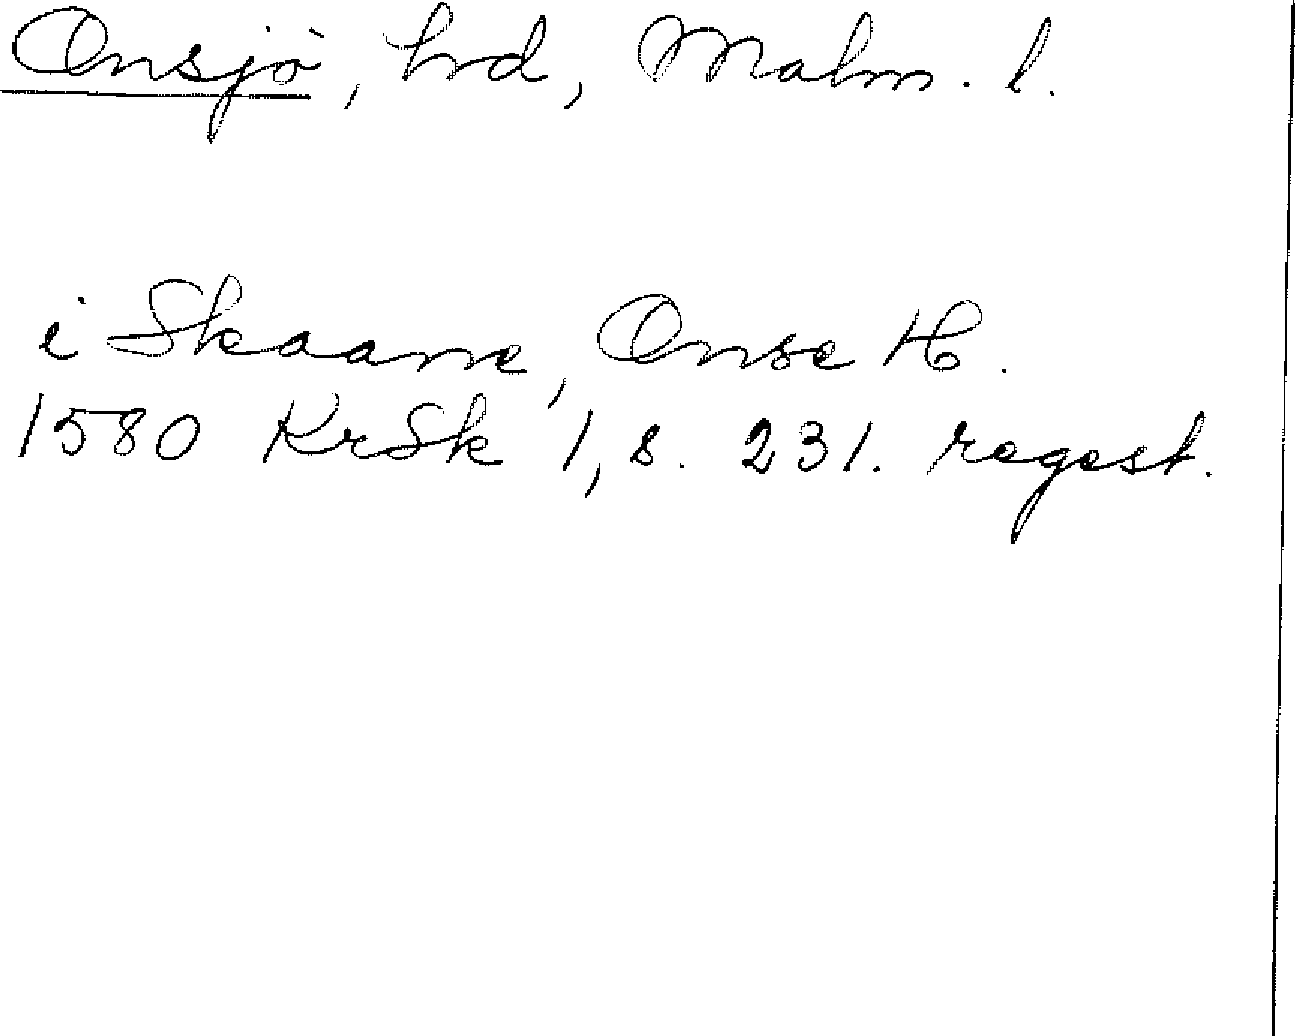 Onsjö, hrd, Malm. l.
i Skaane, Onse H.
1580 KrSk 1, s. 231. regest.